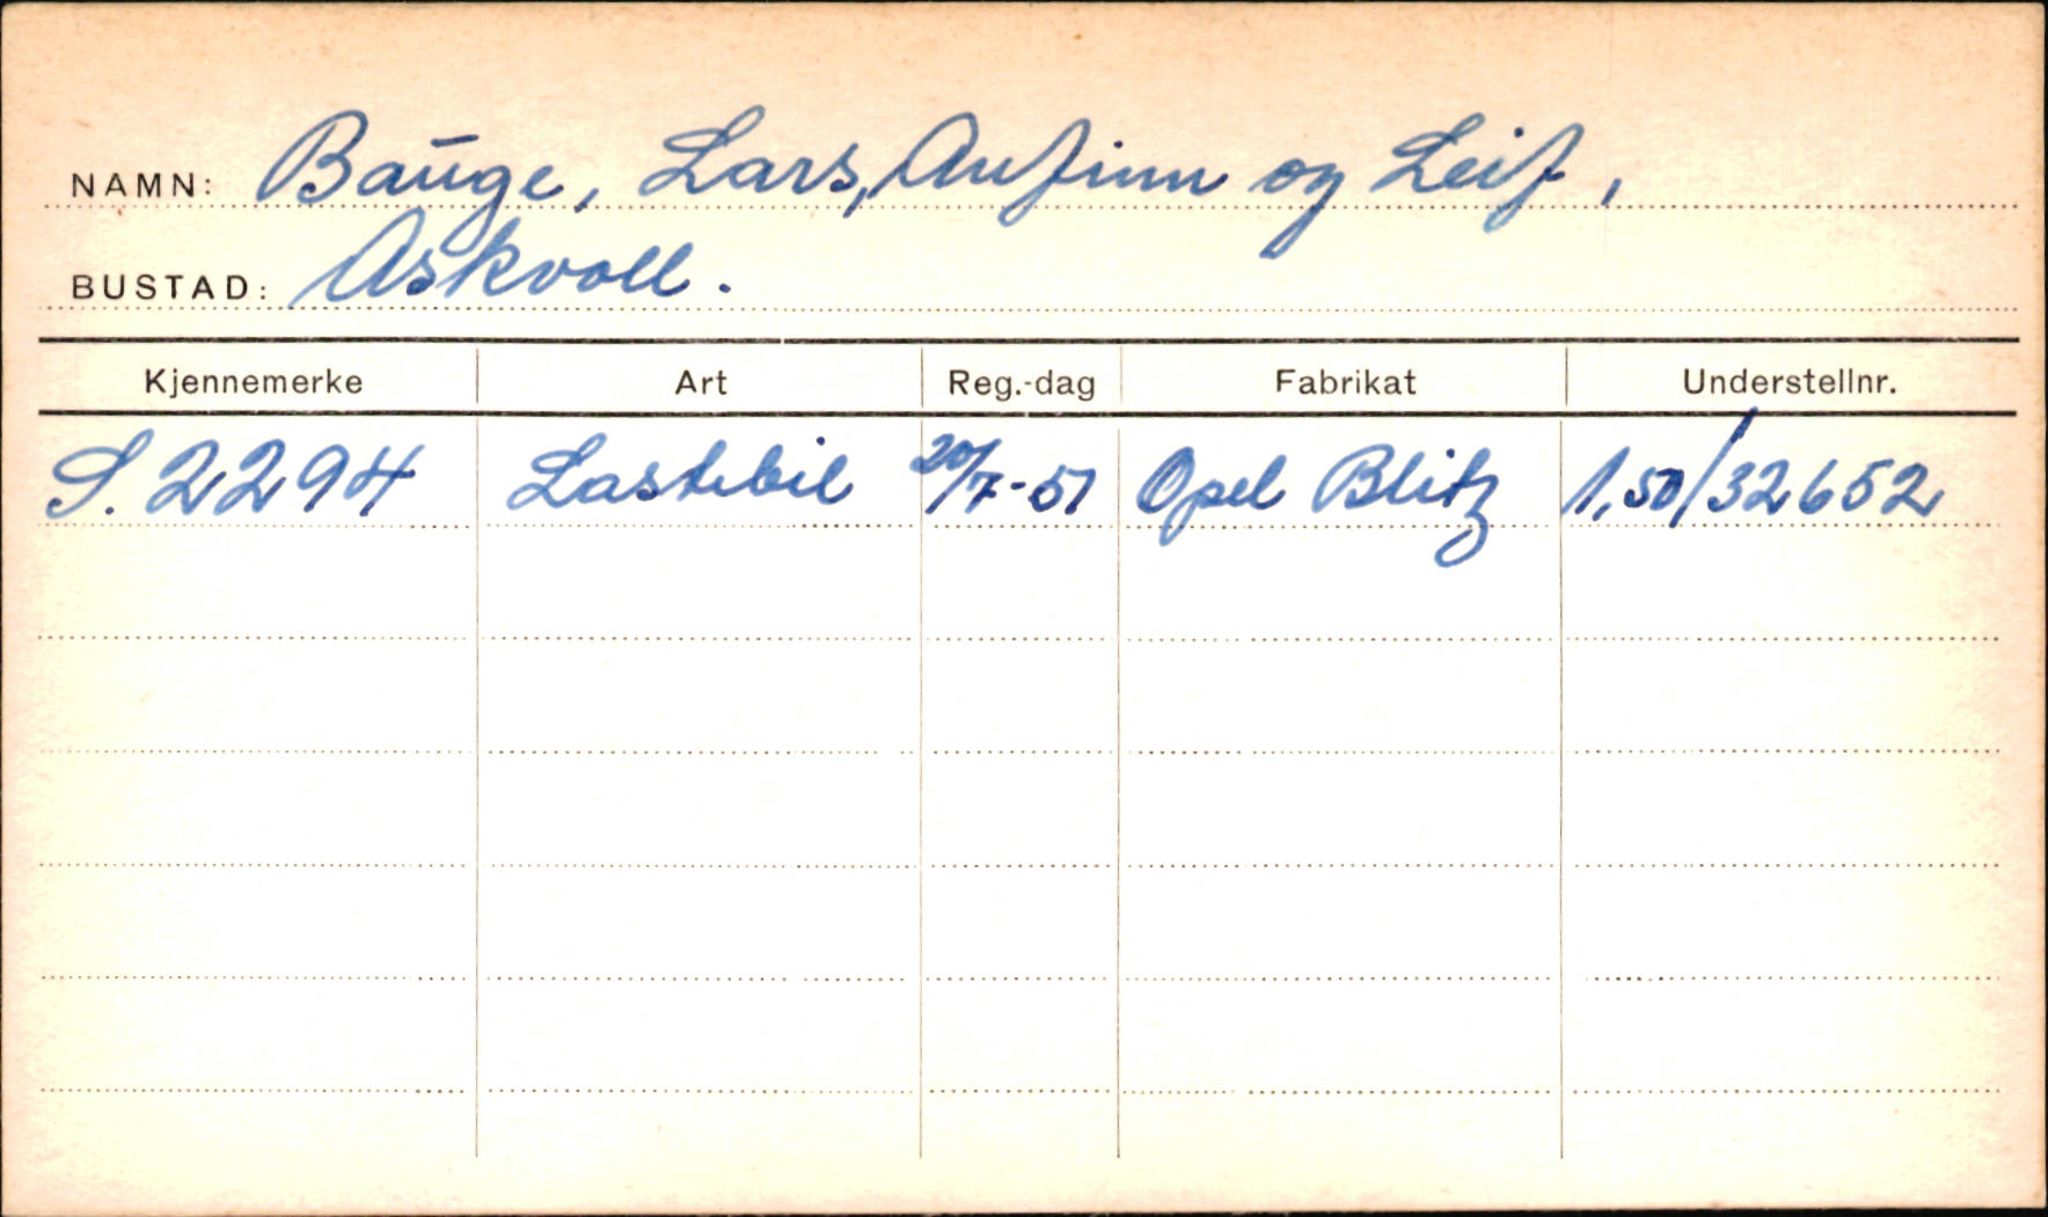 NAMN: Bauge, Lars, Anfinn og Leif,
BUSTAD: Askvoll.
Kjennemerke Art Reg.-dag Fabrikat Understellnr.
S. 2294 Lastebil 20/7-51 Opel Blitz 1,50/32652